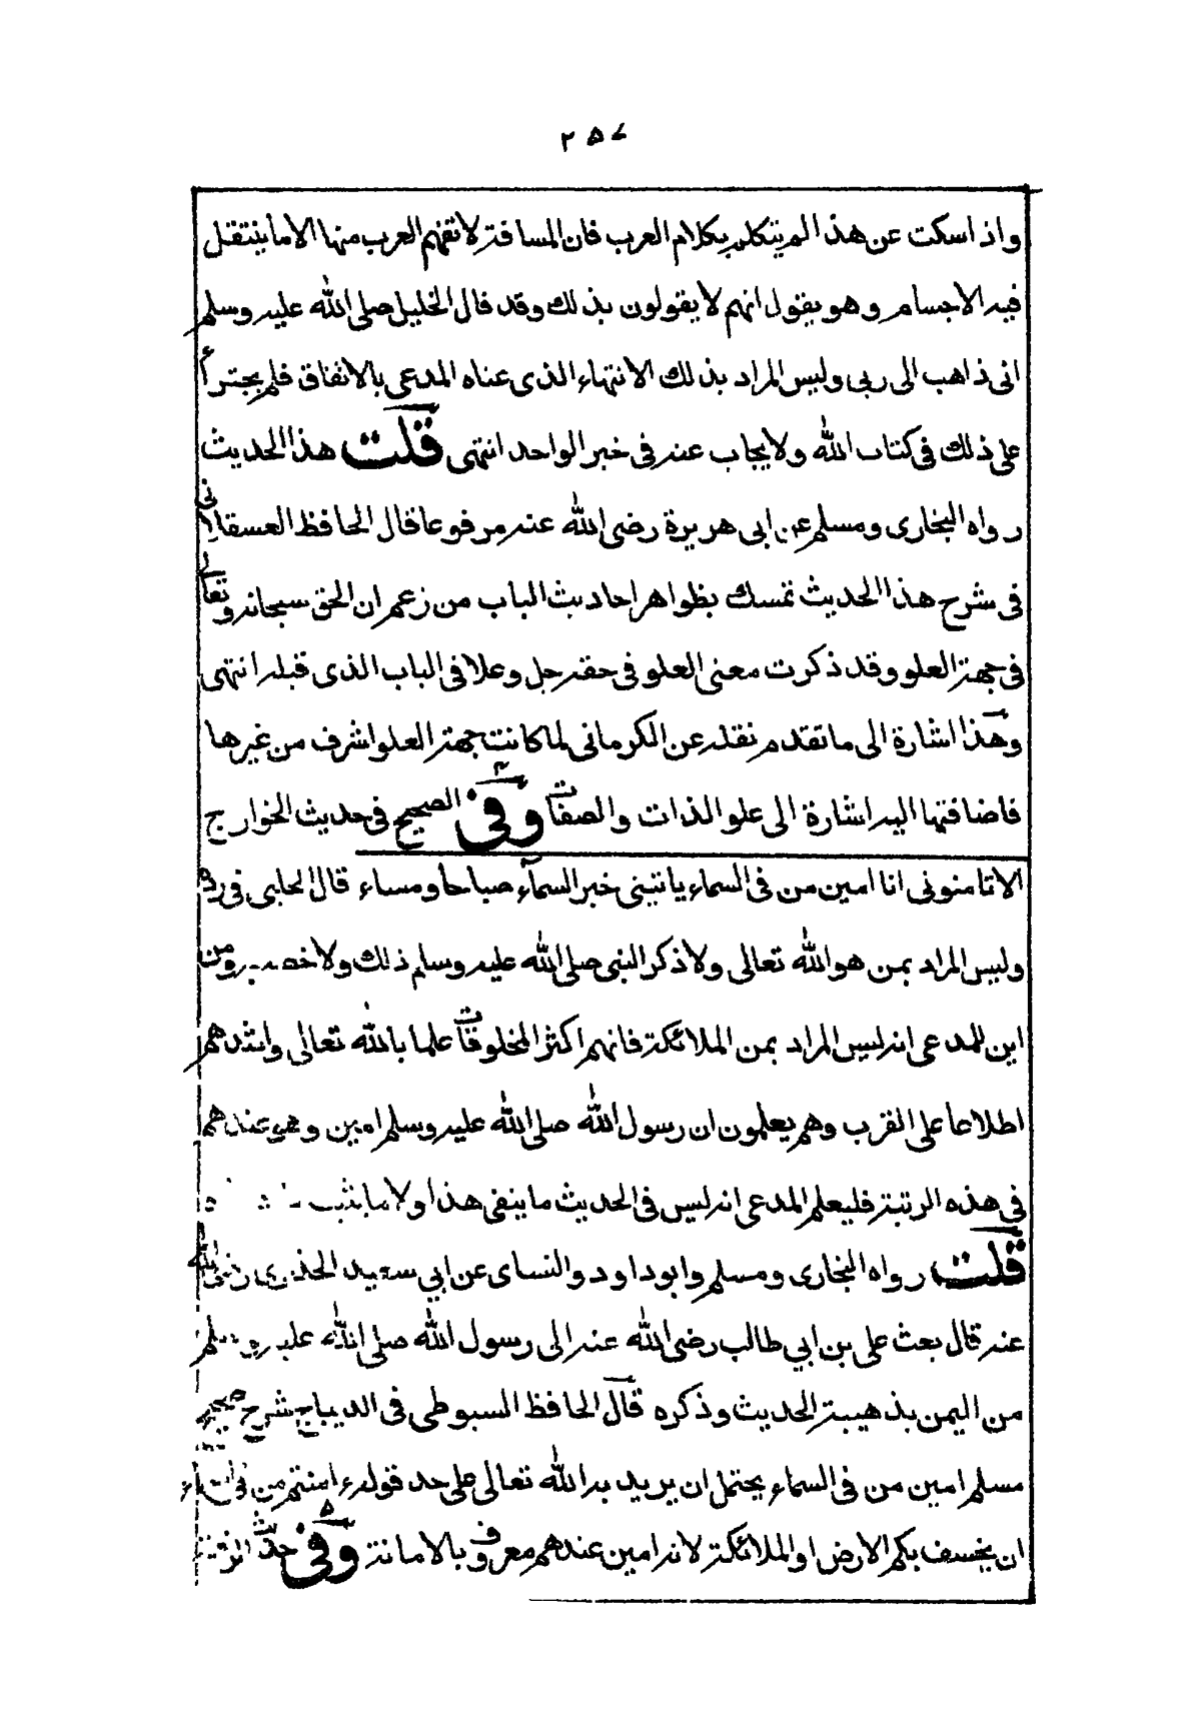 ٢٥٧
واذا سكت عن هذا لم يتكلم بكلام العرب فان المسافة لا تفهم العرب منها الا ما ينتقل
فيه الاجسام وهو يقول انهم لا يقولون بذلك وقد قال الخليل صلى الله عليه وسلم
انى ذاهب الى ربى وليس المراد بذلك الانتهاء الذى عناه المدعى بالاتفاق فلم يجترأ
على ذلك فى كتاب الله ولا يجاب عنه فى خبر الواحد انتهى قلت هذا الحديث
رواه البخارى ومسلم عن ابى هريرة رضى الله عنه مرفوعا قال الحافظ العسقلانى
فى شرح هذا الحديث تمسك بظواهر احاديث الباب من زعم ان الحق سبحانه وتعالى
فى جهة العلو وقد ذكرت معنى العلو فى حقه جل وعلا فى الباب الذى قبله انتهى
وهذا اشارة الى ما تقدم نقله عن الكرمانى لما كانت جهة العلو اشرف من غيرها
فاضافتها اليه اشارة الى علو الذات والصفات وفى الصحيح فى حديث الخوارج
الا تامنونى انا امين من فى السماء ياتينى خبر السماء صباحا ومساء قال الحلبى فى رده
وليس المراد بمن هو الله تعالى ولا ذكر النبى صلى الله عليه وسلم ذلك ولا خصه به ومن
اين للمدعى انه ليس المراد بمن الملائكة فانهم اكثر المخلوقات علما بالله تعالى واشدهم
اطلاعا على القرب وهم يعلمون ان رسول الله صلى الله عليه وسلم امين وهو عندهم
فى هذه الرتبة فليعلم المدعى انه ليس فى الحديث ما ينفى هذا ولا ما يثبت
قلت رواه البخارى ومسلم وابو داود والنساى عن ابي سعيد الخدرى رضى الله
عنه قال بعث على بن ابي طالب رضى الله عنه الى رسول الله صلى الله عليه وسلم
من اليمن بذهيبة الحديث وذكره قال الحافظ السيوطى فى الديباج شرح صحيح
مسلم امين من فى السماء يحتمل ان يريد به الله تعالى على حد قوله ءامنتم من فى السماء
ان يخسف بكم الارض او الملائكة لانه امين عندهم معروف بالامانة وفى حديث